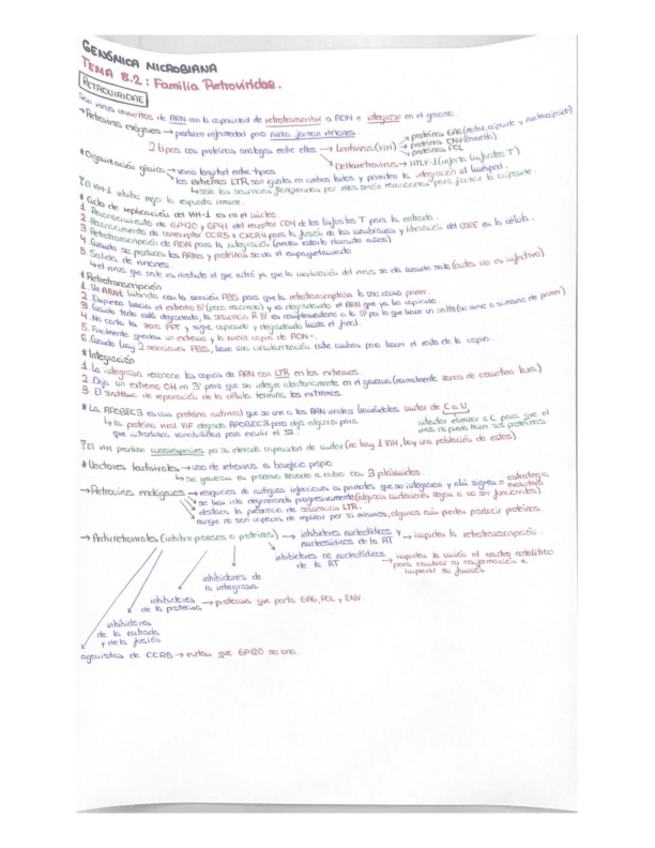 GENÓMICA MICROBIANA
TEMA 8.2: Familia Retroviridae.
RETROVIRIDAE
Son virus envueltos de ARN con la capacidad de retrotranscribir a ADN e integrarse en el genoma.
→Retrovirus exógenos → producen enfermedad pero nunca forman viriones.
2 tipos con proteínas análogas entre ellos → Lentivirus (VIH) → proteínas GAG (matriz, cápside y nucleocápside)
→ proteínas ENV (envuelta)
→ proteínas POL
→ Deltaretrovirus → HTLV-1 (infecta linfocitos T)
* Organización génica → varia longitud entre tipos.
los extremos LTR son iguales en ambos lados y permiten la integración al huésped.
↳ solo las secuencias flanqueadas por ellos serán reconocidas para formar la cápside.
El VIH-1 inhibe mejor la respuesta inmune.
* Ciclo de replicación del VIH-1 es en el núcleo.
1. Reconocimiento de GP120 y GP41 del receptor CD4 de los linfocitos T para la entrada.
2. Reconocimiento de correceptor CCR5 o CXCR4 para la fusión de las membranas y liberación del CORE en la célula.
3. Retrotranscripción de ADN para la integración (puede estarlo durante años).
4. Cuando se producen los ARNs y proteínas se da el empaquetamiento
5. Salida de viriones.
↳ el virus que sale es distinto al que entró ya que la maduración del virus se da cuando sale (antes no es infectivo).
* Retrotranscripción
1. Un ARNt hibrida con la sección PBS para que la retrotranscriptasa lo use como primer.
2. Empieza hacia el extremo 5' (poco recorrido) y va degradando el ARN que ya ha copiado.
3. Cuando todo está degradado, la secuencia R 5' es complementaria a la 3' por lo que hace un salto (se une a sí misma de primer)
4. No corta la zona PPT y sigue copiando y degradando hasta el final.
5. Finalmente queda un extremo y la nueva copia de ADN-.
6. Cuando hay 2 secciones PBS, hace una circularización entre ambas para hacer el resto de la copia.
* Integración
1. La integrasa reconoce las copias de ARN con LTR en los extremos.
2. Deja un extremo OH en 3' para que se integre aleatoriamente en el genoma (normalmente zonas de cromatina laxa)
3. El sistema de reparación de la célula termina los extremos.
* La APOBEC3 es una proteína antiviral que se une a los ARN virales haciéndoles mutar de C a U.
↳ la proteína viral VIF degrada APOBEC3 pero deja algunas para que introduzca variabilidad para evadir el SI.
intentar eliminar la C para que el virus no pueda hacer sus proteínas
El VIH produce cuasiespecies por su elevada capacidad de mutar (no hay 1 VIH, hay una población de estos).
* Vectores lentivirales → uso de retrovirus a beneficio propio
↳ se generan en proceso llevado a cabo con 3 plásmidos.
→ Retrovirus endógenos → vestigios de antiguas infecciones en primates que se integraron y ahí siguen = estrategia evolutiva
→ se han ido degenerando progresivamente (algunas mutaciones llegan a no ser funcionales).
→ destaca la presencia de secuencias LTR.
→ aunque no son capaces de replicar por sí mismos, algunos aún pueden producir proteínas.
→ Antirretrovirales (inhibe procesos o proteínas) → inhibidores nucleotídicos y nucleosídicos de la RT → impiden la retrotranscripción.
inhibidores no nucleotídicos de la RT → impiden la unión al centro catalítico para cambiar su conformación e impedir su función
inhibidores de la integrasa
inhibidores de la proteasa → proteasa que parte GAG, POL y ENV.
inhibidores de la entrada y de la fusión
agonistas de CCR5 → evitan que GP120 se una.